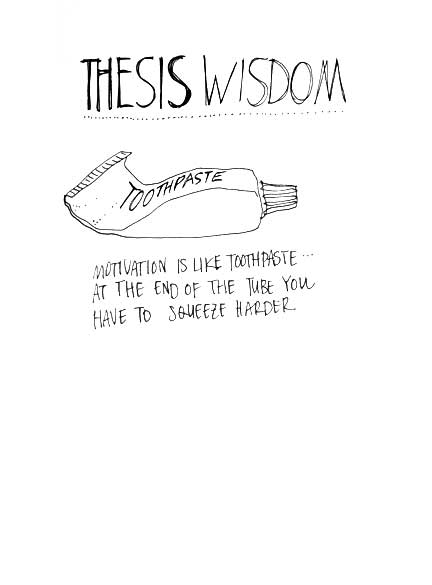 THESIS WISDOM
TOOTHPASTE
MOTIVATION IS LIKE TOOTHPASTE...
AT THE END OF THE TUBE YOU
HAVE TO SQUEEZE HARDER